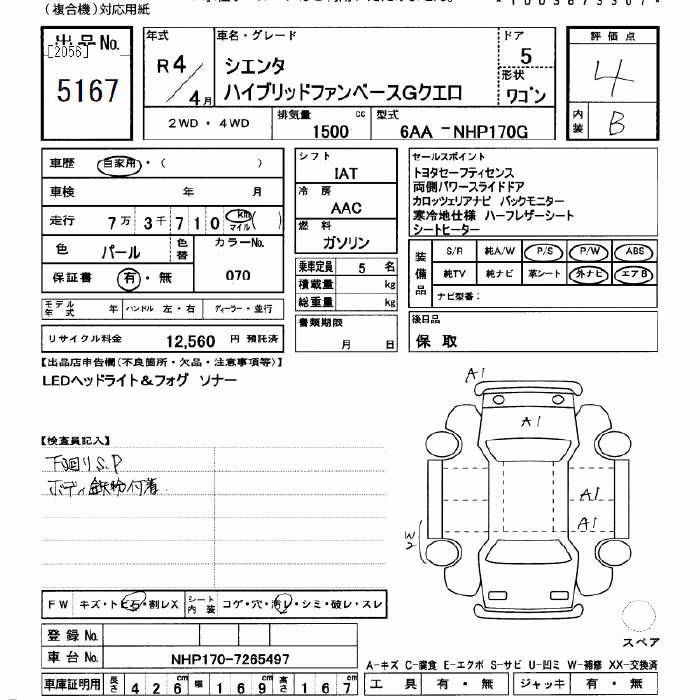 (複合機)対応用紙
出品No.
[2056]
5167
年式
R4/4月
車名・グレード
シエンタ
ハイブリッドファンベースGクエロ
ドア
5
形状
ワゴン
評価点
4
内装
B
2WD・4WD
排気量
1500 cc
型式
6AA-NHP170G
車歴 自家用・( )
車検 年 月
走行 7万3千710 km マイル( )
色 パール 色替
カラーNo.
070
保証書 有・無
モデル年式 年 ハンドル 左・右 ディーラー・並行
リサイクル料金 12,560 円 預託済
シフト
IAT
冷房
AAC
燃料
ガソリン
乗車定員 5 名
積載量 kg
総重量 kg
書類期限
月 日
セールスポイント
トヨタセーフティセンス
両側パワースライドドア
カロッツェリアナビ バックモニター
寒冷地仕様 ハーフレザーシート
シートヒーター
装備品
S/R 純A/W P/S P/W ABS
純TV 純ナビ 革シート 外ナビ エアB
ナビ型番:
後日品
保 取
【出品店申告欄(不良箇所・欠品・注意事項等)】
LEDヘッドライト&フォグ ソナー
【検査員記入】
下回りS.P
ボディ鉄粉付着
A1
A1
A1
A1
W2
FW キズ・トビ石・割レX シート内装 コゲ・穴・汚レ・シミ・破レ・スレ
スペア
登録No.
車台No. NHP170-7265497
A-キズ C-腐食 E-エクボ S-サビ U-凹ミ W-補修 XX-交換済
車庫証明用 長さ 426cm 幅 169cm 高さ 167cm
工具 有・無 ジャッキ 有・無